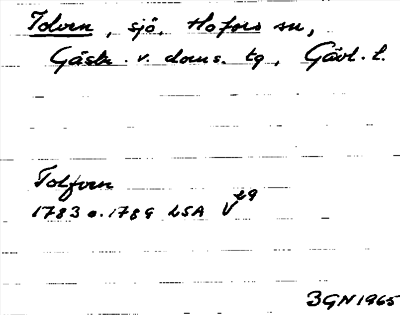 Idern, sjö, Hofors sn,
Gästr. v. doms. tg, Gävl. l.
Tolfven
1783 o. 1789 LSA V
3GN1965